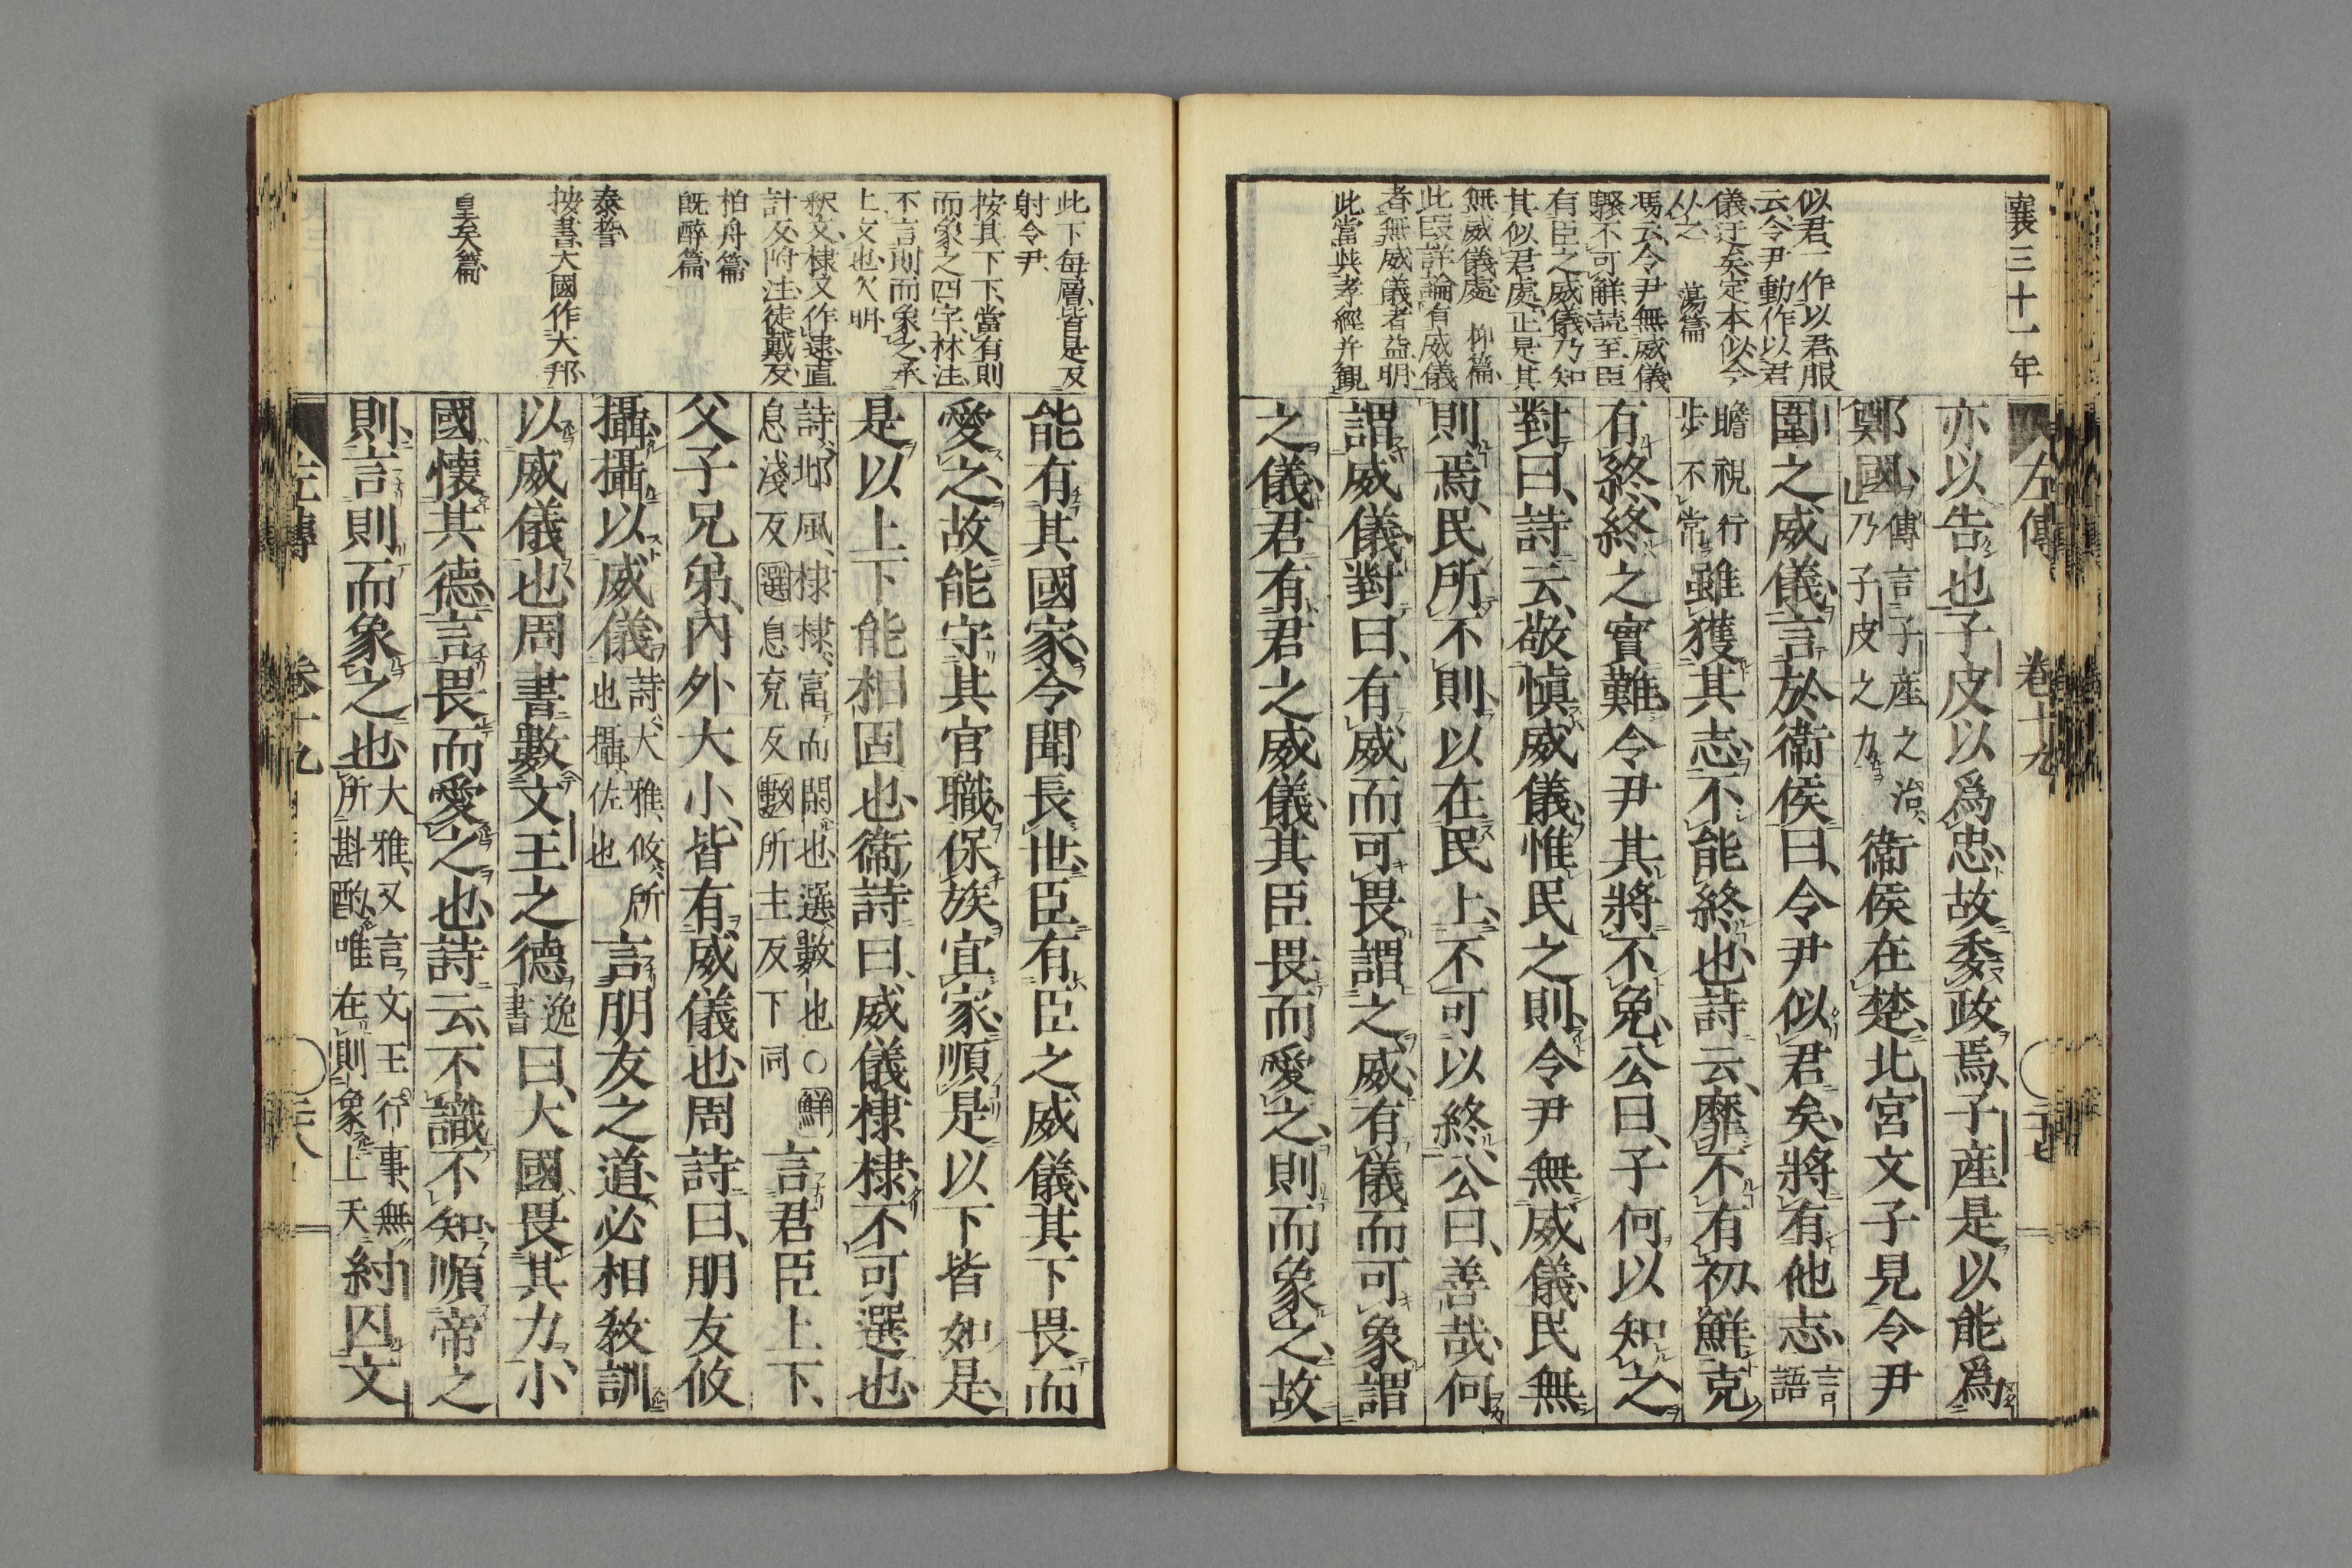 襄三十一年
似君一作以君服
云令尹動作以君
儀迂矣定本似今
从之　蕩篇
馮云令尹無威儀
騷不可解説至臣
有臣之威儀乃知
其似君處正是其
無威儀處　抑篇
此段詳論有威儀
者無威儀者益明
此當與孝經并観
左傳　卷十九
亦以告也子皮以爲忠故委政焉子產是以能爲
鄭國傳言子產之治
乃子皮之力衞侯在楚北宮文子見令尹
圍之威儀言於衞侯曰令尹似君矣將有他志言
語
瞻視行
步不常雖獲其志不能終也詩云靡不有初鮮克
有終終之實難令尹其將不免公曰子何以知之
對曰詩云敬愼威儀惟民之則令尹無威儀民無
則焉民所不則以在民上不可以終公曰善哉何
謂威儀對曰有威而可畏謂之威有儀而可象謂
之儀君有君之威儀其臣畏而愛之則而象之故
此下每層皆是反
射令尹
按其下下當有則
而象之四字林注
不言則而象之承
上文也欠明
釈文棣又作逮直
計反附注徒戴反
柏舟篇
既醉篇
泰誓
按書大國作大邦
皇矣篇
能有其國家令聞長世臣有臣之威儀其下畏而
愛之故能守其官職保族宜家順是以下皆如是
是以上下能相固也衞詩曰威儀棣棣不可選也
詩邶風棣棣富而閑也選數也○鮮
息淺反選息兗反數所主反下同言君臣上下
父子兄弟內外大小皆有威儀也周詩曰朋友攸
攝攝以威儀詩大雅攸所
也攝佐也言朋友之道必相敎訓
以威儀也周書數文王之德逸
書曰大國畏其力小
國懐其德言畏而愛之也詩云不識不知順帝之
則言則而象之也大雅又言文王行事無
所斟酌唯在則象上天紂囚文
左傳　卷十九